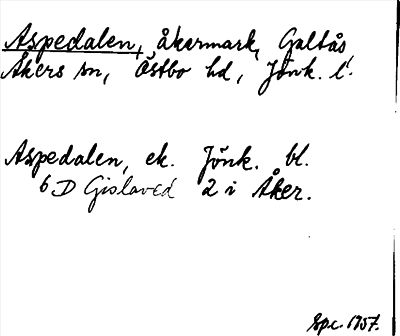 Aspedalen, åkermark, Galtås
Åkers sn, Östbo hd, Jönk. l.
Aspedalen, ek. Jönk. bl.
6 D Gislaved 2 i Åker.
1957.